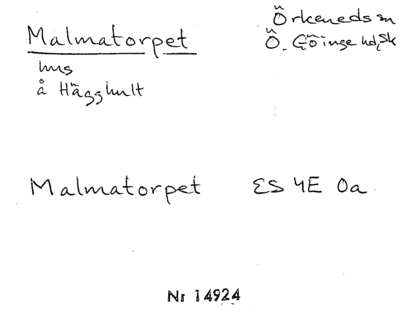 Malmatorpet
hus
å Hägghult
Örkeneds sn
Ö. Göinge hd, Sk
Malmatorpet ES 4E 0a
Nr 14924